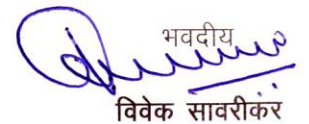 भवदीय
विवेक सावरीकर